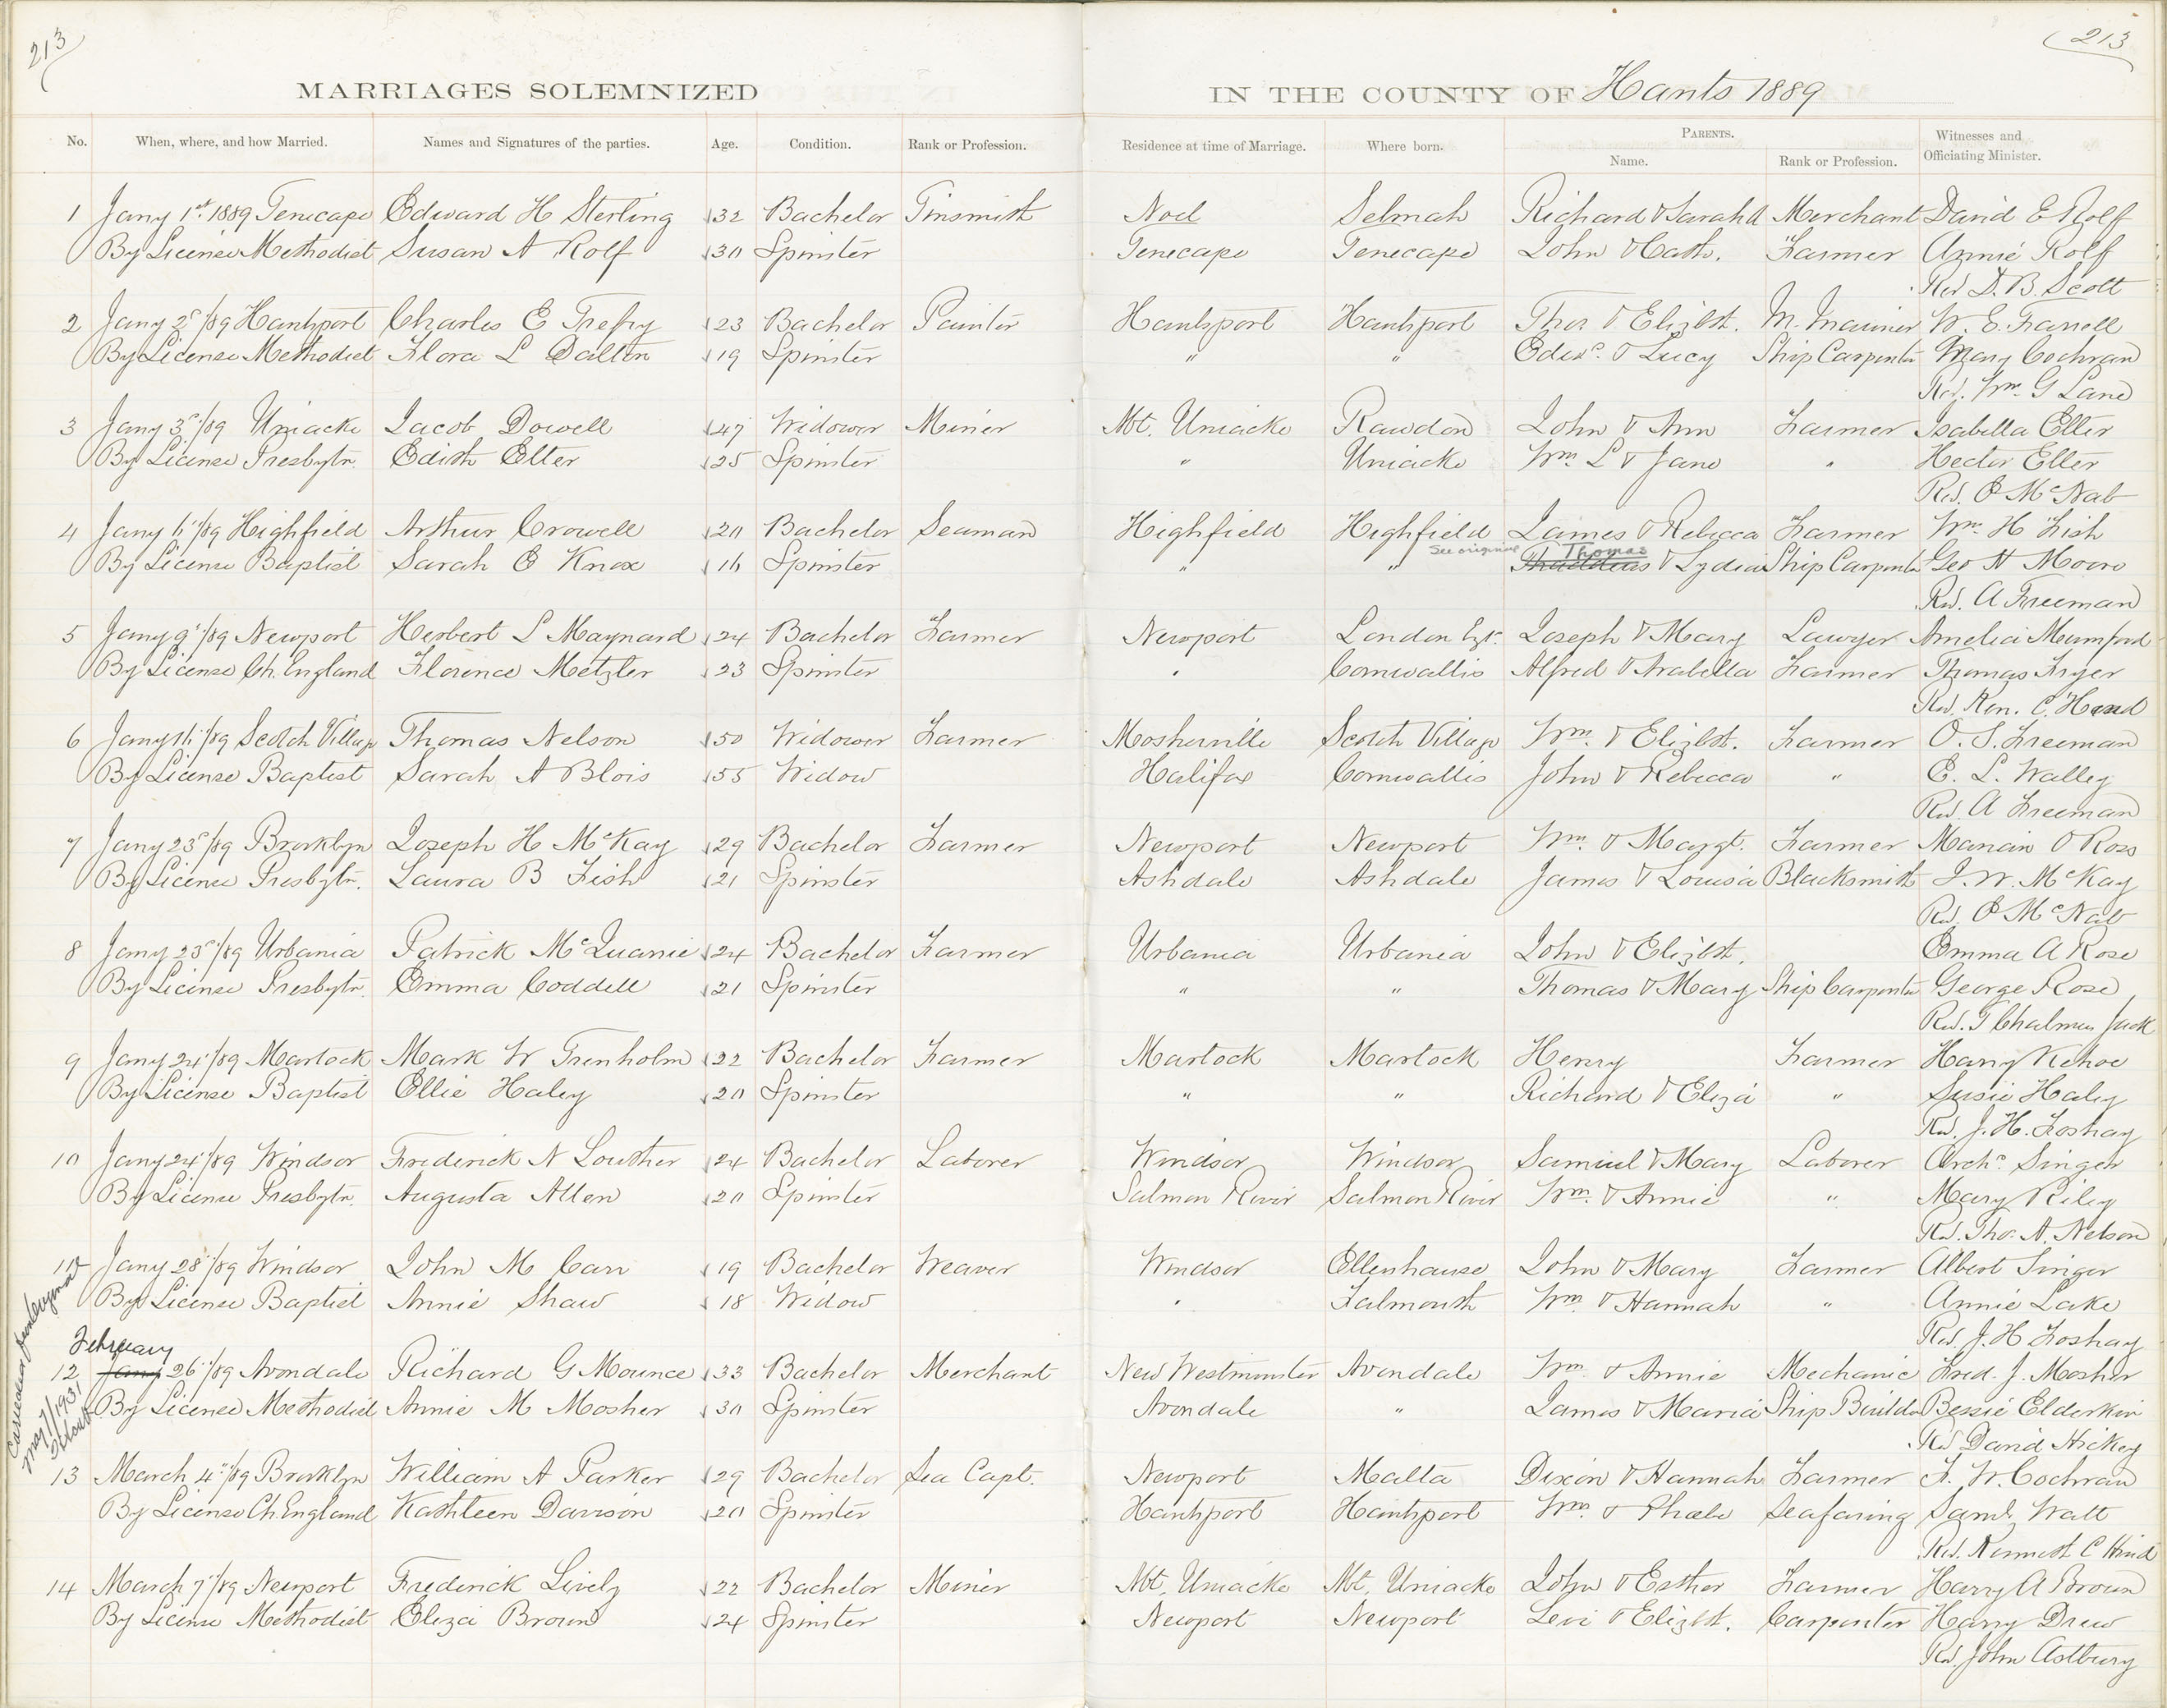 213
213
MARRIAGES SOLEMNIZED IN THE COUNTY OF Hants 1889
No. When, where, and how Married. Names and Signatures of the parties. Age. Condition. Rank or Profession. Residence at time of Marriage. Where born. PARENTS. Name. Rank or Profession. Witnesses and Officiating Minister.
1 Jany 1st 1889 Tenecape Edward H Sterling 32 Bachelor Tinsmith Noel Selmah Richard & Sarah A Merchant David E Rolf
By License Methodist Susan A Rolf 30 Spinster Tenecape Tenecape John & Cath. Farmer Annie Rolf
Rev D. B. Scott
2 Jany 2d/89 Hantsport Charles E Trefry 23 Bachelor Painter Hantsport Hantsport Thos & Elizbt. M. Mariner W. E. Farrell
By License Methodist Flora L Dalton 19 Spinster " " Edwd. & Lucy Ship Carpenter Mary Cochran
Rev. Wm. G Lane
3 Jany 3d/89 Uniacke Jacob Dowell 47 Widower Miner Mt. Uniacke Rawdon John & Ann Farmer Isabella Etter
By License Presbytn. Edith Etter 25 Spinster " Uniacke Wm. L & Jane " Hector Etter
Rev. McNab
4 Jany 16/89 Highfield Arthur Crowell 20 Bachelor Seaman Highfield Highfield James & Rebecca Farmer Wm. H Fish
See original Thomas
By License Baptist Sarah E Knox 16 Spinster " " Thaddeus & Lydia Ship Carpenter Geo H Moore
Rev. A Freeman
5 Jany 9/89 Newport Herbert L Maynard 24 Bachelor Farmer Newport London Egt. Joseph & Mary Lawyer Amelia Mumford
By License Ch. England Florence Metzler 23 Spinster " Cornwallis Alfred & Arabella Farmer Thomas Fryer
Rev. Ken. C. Hind
6 Jany 16/89 Scotch Village Thomas Nelson 50 Widower Farmer Mosherville Scotch Village Wm. & Elizbt. Farmer O. S. Freeman
By License Baptist Sarah A Blois 55 Widow Halifax Cornwallis John & Rebecca " E. L. Walley
Rev A Freeman
7 Jany 23d/89 Brooklyn Joseph H McKay 29 Bachelor Farmer Newport Newport Wm. & Margt. Farmer O Ross
By License Presbytn. Laura B Fish 21 Spinster Ashdale Ashdale James & Louisa Blacksmith J. W. McKay
Rev. McNab
8 Jany 23d/89 Urbania Patrick McQuanie 24 Bachelor Farmer Urbania Urbania John & Elizbt. Emma A Rose
By License Presbytn. Emma Coddell 21 Spinster " " Thomas & Mary Ship Carpenter George Rose
Rev. T Chalmers Jack
9 Jany 24/89 Martock Mark W Trenholm 22 Bachelor Farmer Martock Martock Henry Farmer Harry Kehoe
By License Baptist Ellie Haley 20 Spinster " " Richard & Eliza " Susie Haley
Rev. J. H. Foshay
10 Jany 24/89 Windsor Frederick N Lowther 24 Bachelor Laborer Windsor Windsor Samuel & Mary Laborer Archd. Singer
By License Presbytn. Augusta Allen 20 Spinster Salmon River Salmon River Wm. & Annie " Mary Riley
Rev. Tho. A. Nelson
11 Jany 28/89 Windsor John M Carr 19 Bachelor Weaver Windsor Ellenhause John & Mary Farmer Albert Singer
By License Baptist Annie Shaw 18 Widow " Falmouth Wm. & Hannah " Annie Lake
Rev J. H Foshay
February
12 Jany 26/89 Avondale Richard G Mounce 33 Bachelor Merchant New Westminster Avondale Wm & Annie Mechanic Fred. J. Mosher
By License Methodist Annie M Mosher 30 Spinster Avondale " James & Maria Ship Builder Bessie Elderkin
Rev David Hickey
May 7/1931
13 March 4th/89 Brooklyn William A Parker 29 Bachelor Sea Capt. Newport Malta Dixon & Hannah Farmer F. W. Cochran
By License Ch. England Kathleen Davison 20 Spinster Hantsport Hantsport Wm & Phoebe Seafaring Saml. Watt
Rev. Kenneth C Hind
14 March 7/89 Newport Frederick Lively 22 Bachelor Miner Mt. Uniacke Mt. Uniacke John & Esther Farmer Harry A Brown
By License Methodist Eliza Brown 24 Spinster Newport Newport Levi & Elizbt. Carpenter Harry Drew
Rev. John Astbury